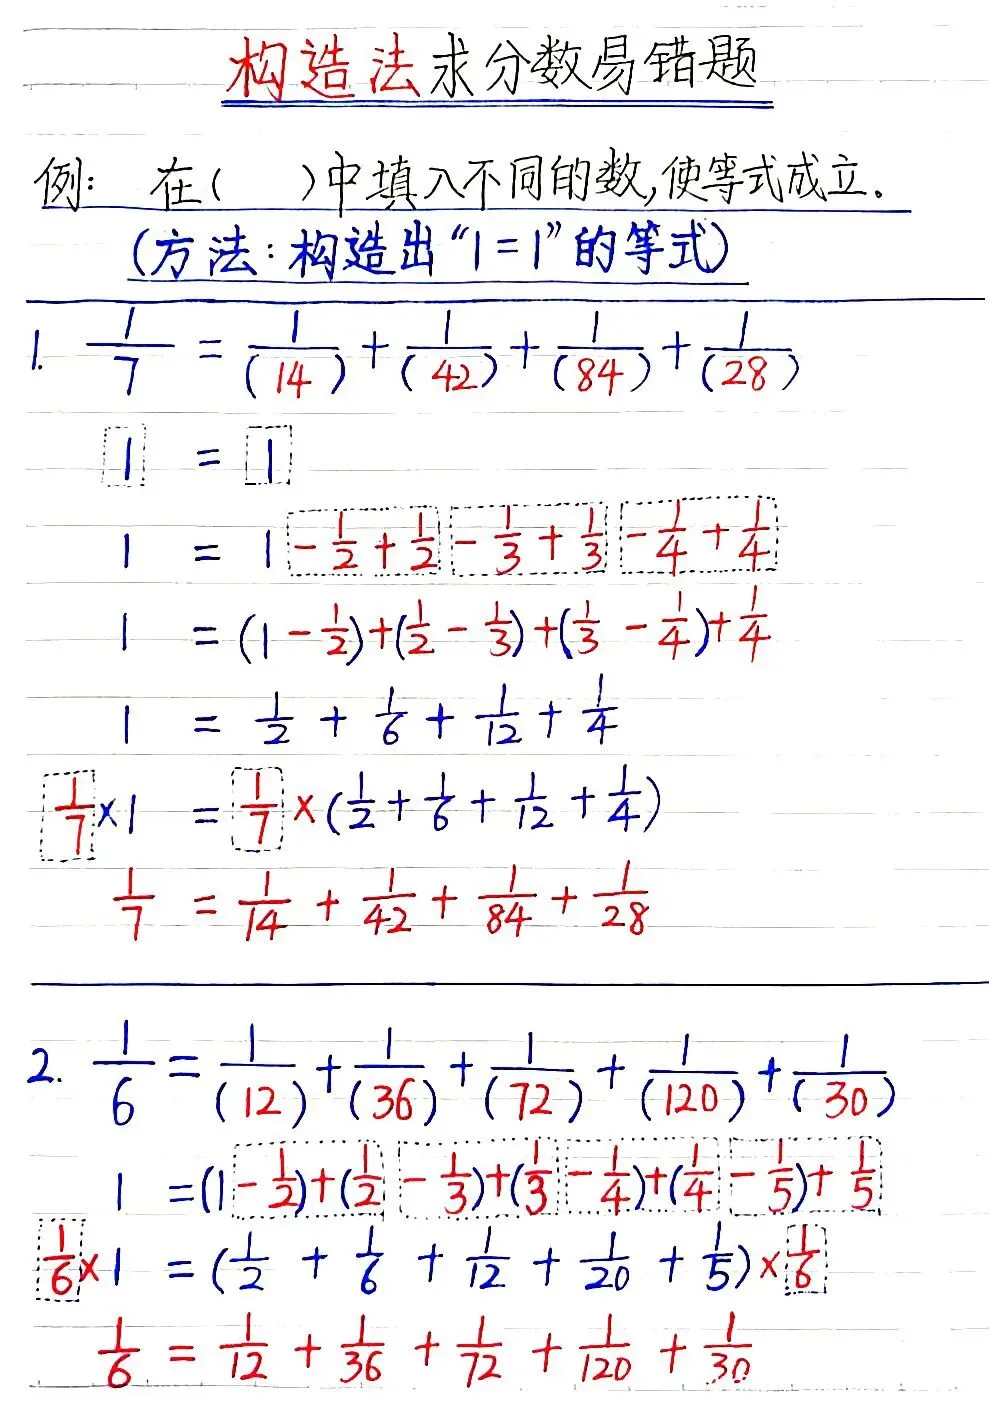 构造法求分数易错题
例: 在( )中填入不同的数,使等式成立.
(方法:构造出“1=1”的等式)
1. 1/7 = 1/(14) + 1/(42) + 1/(84) + 1/(28)
1 = 1
1 = 1 - 1/2 + 1/2 - 1/3 + 1/3 - 1/4 + 1/4
1 = (1 - 1/2) + (1/2 - 1/3) + (1/3 - 1/4) + 1/4
1 = 1/2 + 1/6 + 1/12 + 1/4
1/7 × 1 = 1/7 × (1/2 + 1/6 + 1/12 + 1/4)
1/7 = 1/14 + 1/42 + 1/84 + 1/28
2. 1/6 = 1/(12) + 1/(36) + 1/(72) + 1/(120) + 1/(30)
1 = (1 - 1/2) + (1/2 - 1/3) + (1/3 - 1/4) + (1/4 - 1/5) + 1/5
1/6 × 1 = (1/2 + 1/6 + 1/12 + 1/20 + 1/5) × 1/6
1/6 = 1/12 + 1/36 + 1/72 + 1/120 + 1/30